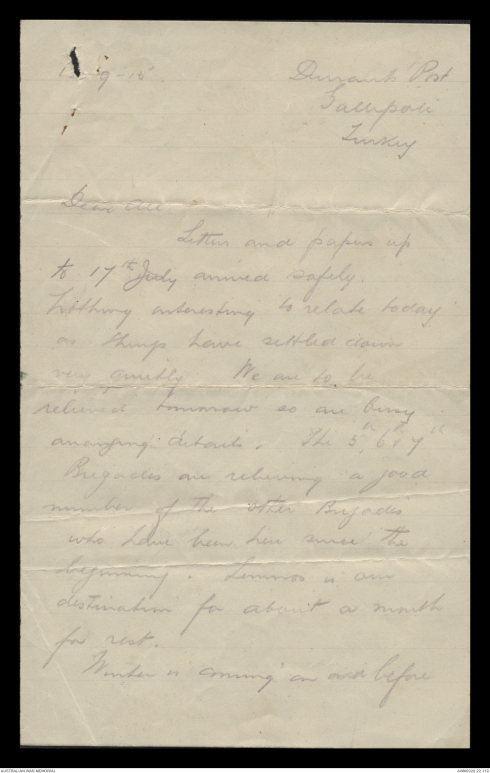 9-15 Durrant's Post
Gallipoli
Turkey
Dear All.
Letters and papers up
to 17th July arrived safely.
Nothing interesting to relate today
as things have settled down
very quietly. We are to be
relieved tomorrow so are busy
arranging details. The 5th, 6th & 7th
Brigades are relieving a good
number of the other Brigades
who have been here since the
beginning. Lemnos is our
destination for about a month
for rest.
Winter is coming on and before
AUSTRALIAN WAR MEMORIAL